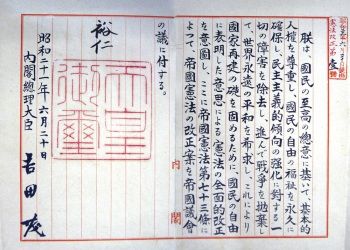 朕は、国民の至高の總意に基いて、基本的
人權を尊重し、國民の自由の福祉を永久に
確保し、民主主義的傾向の强化に對する一
切の障害を除去し、進んで戰爭を抛棄し
て、世界永遠の平和を希求し、これにより
國家再建の礎を固めるために、國民の自由
に表明した意思による憲法の全面的改正
を意圖し、ここに帝國憲法第七十三條に
よつて、帝國憲法の改正案を帝國議會
の議に付する。
裕仁
天皇御璽
昭和二十一年六月二十日
內閣總理大臣
吉田茂
內閣